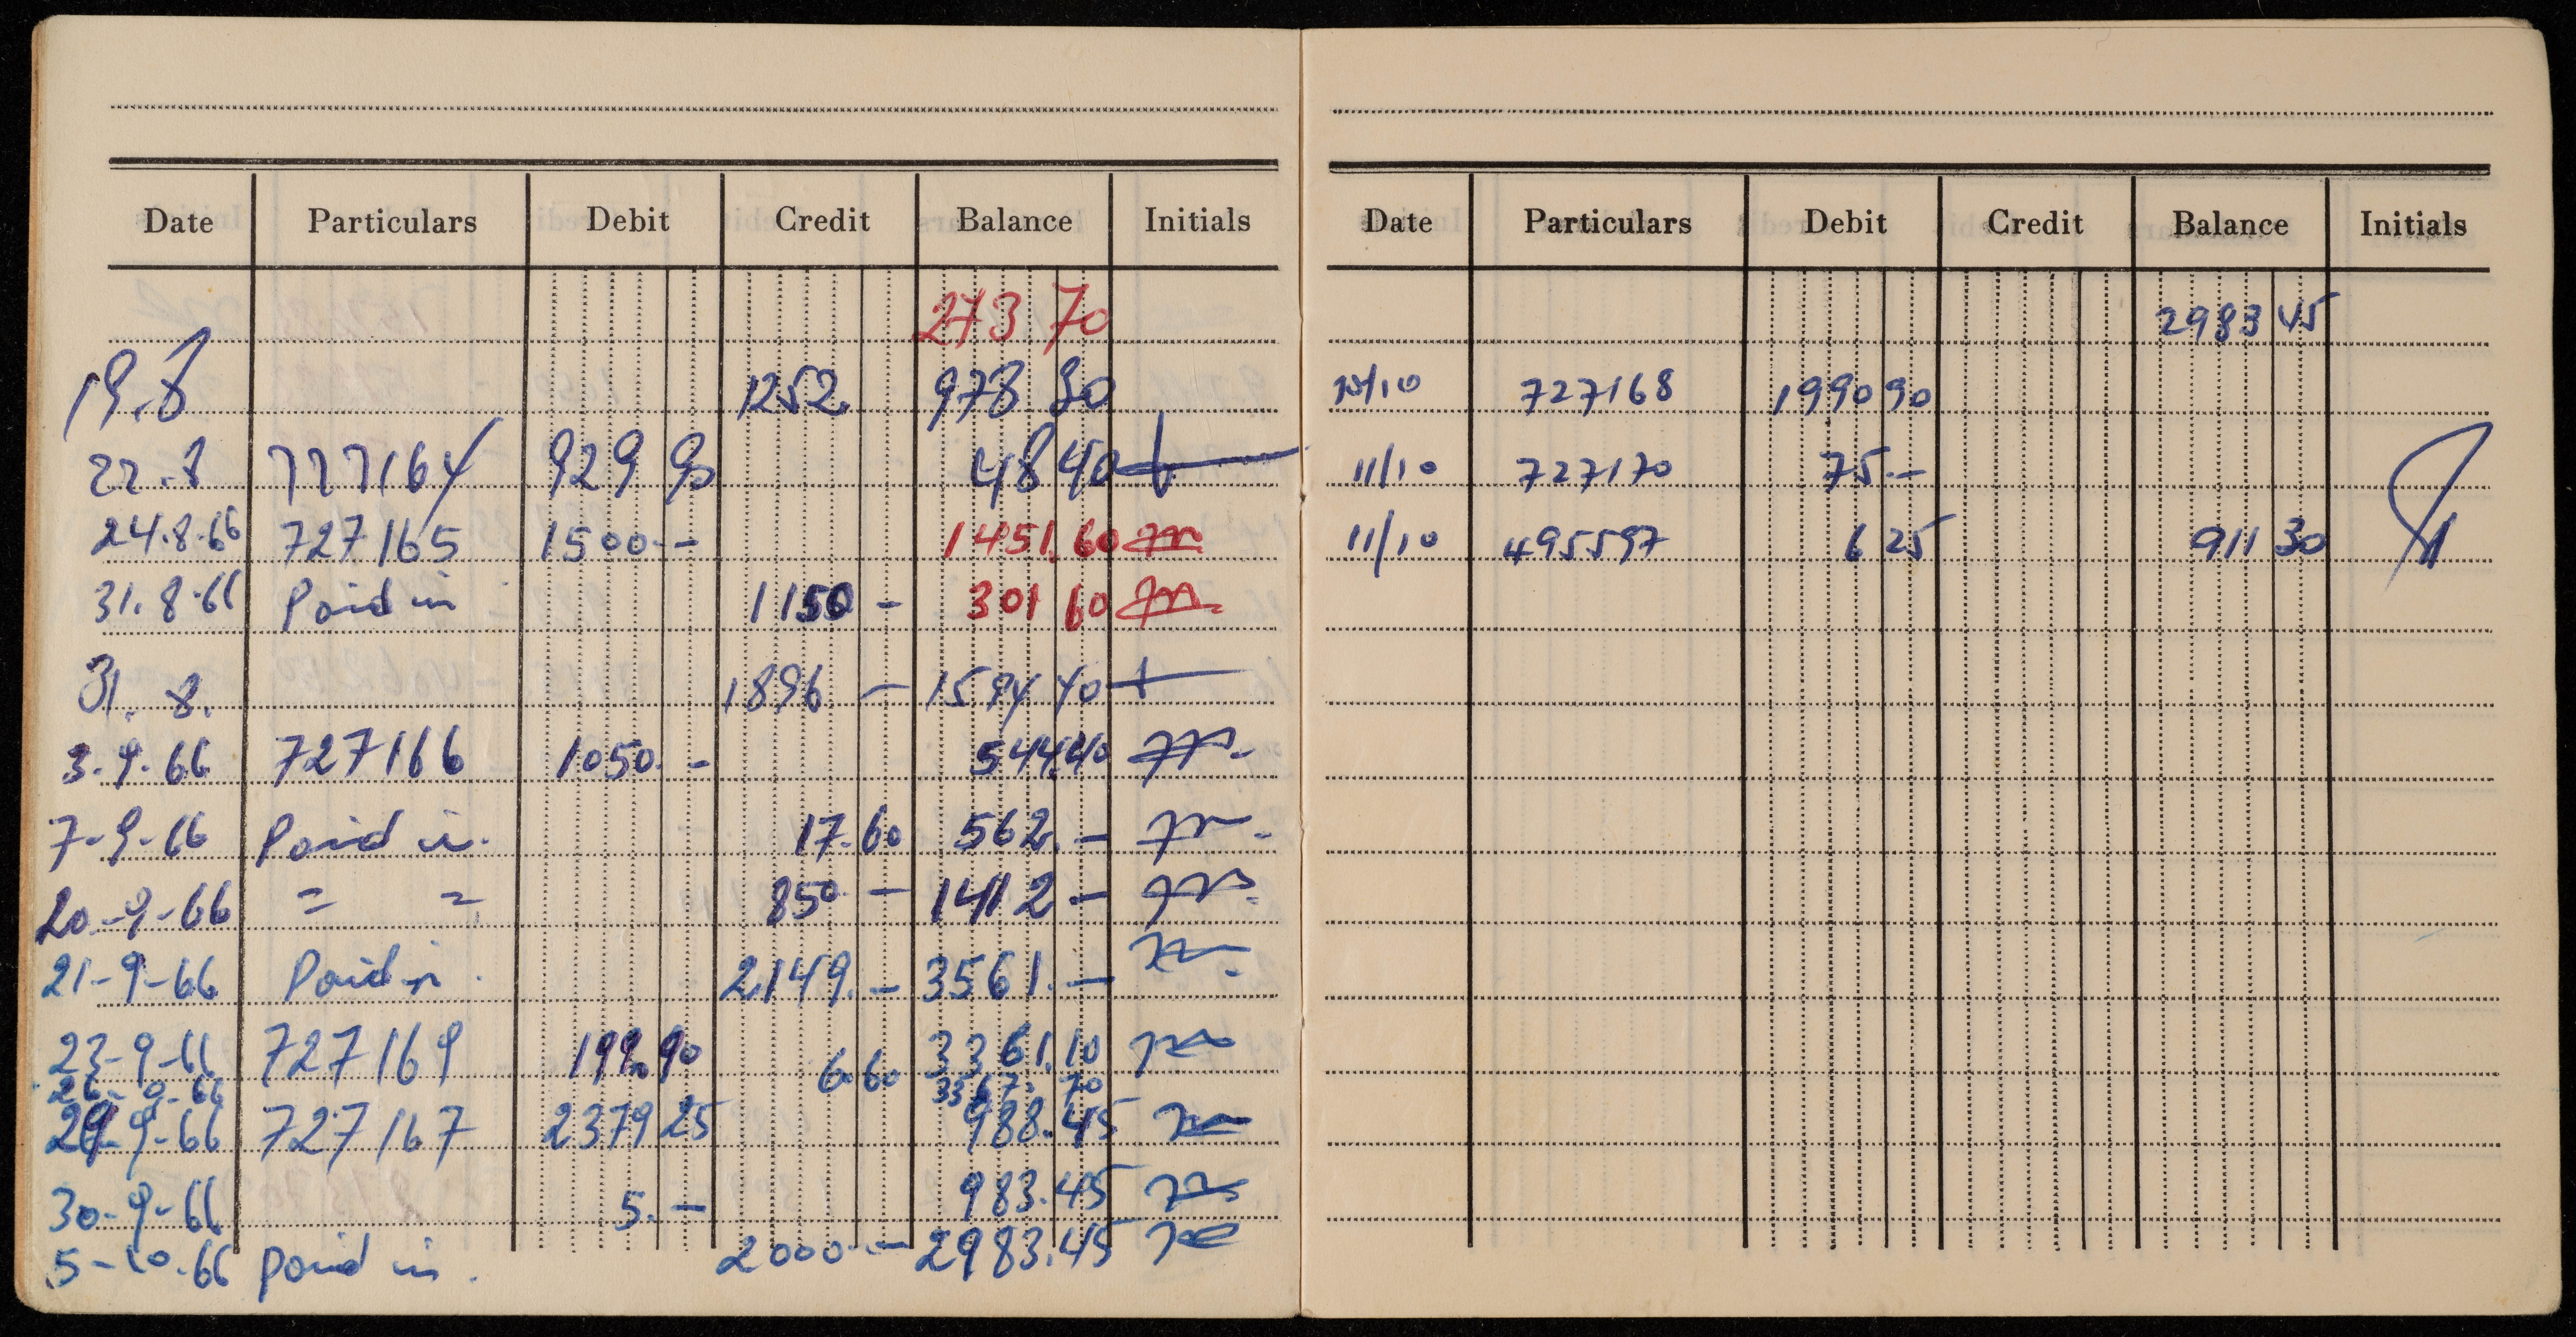 Date Particulars Debit Credit Balance Initials
273 70
19.8 1252. 978 30
22.8 727164 929 90 48 40
24.8.66 727165 1500.- 1451.60
31.8.66 Paid in 1150 - 301 60
31.8. 1896 - 1594 40
3-9-66 727166 1050.- 544.40
7-9-66 Paid in. 17.60 562.-
20-9-66 = = 850 - 1412 -
21-9-66 Paid in. 2149.- 3561.-
23-9-66 727169 199.90 3361.10
26-9-66 6.60 3367.70
29-9-66 727167 2379 25 988.45
30-9-66 5.- 983.45
5-10-66 paid in. 2000.- 2983.45
Date Particulars Debit Credit Balance Initials
2983 45
10/10 727168 1990 90
11/10 727170 75.-
11/10 495597 6 25 911 30